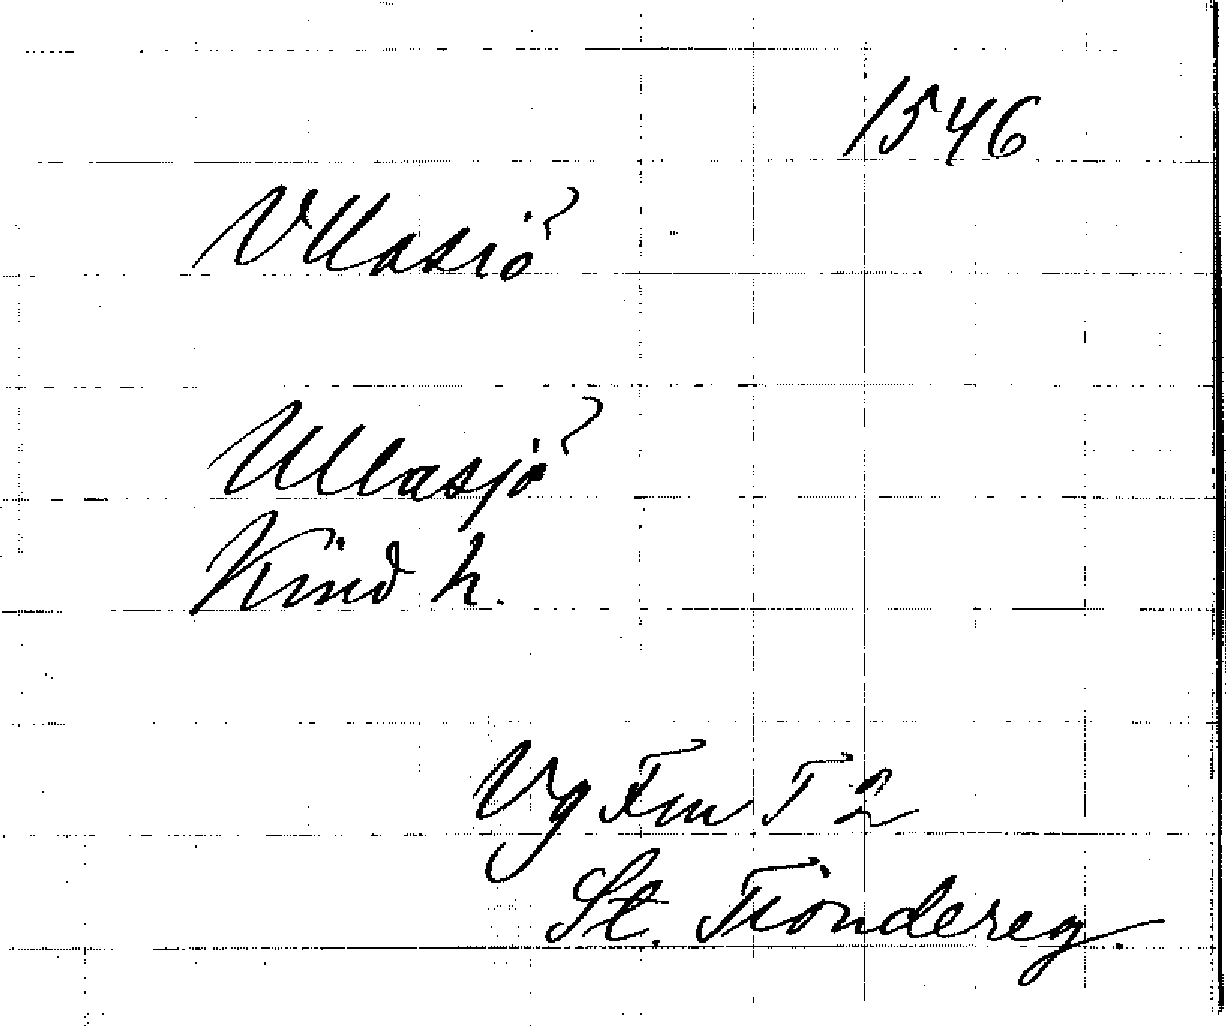 1546
Vllasiö?
Ullasjö?
Kind h.
Vg Fru T 2
St. Tiondereg.